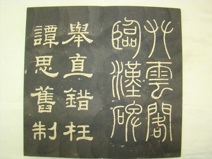 艸雲閣
臨漢碑
舉直錯枉
譚思舊制